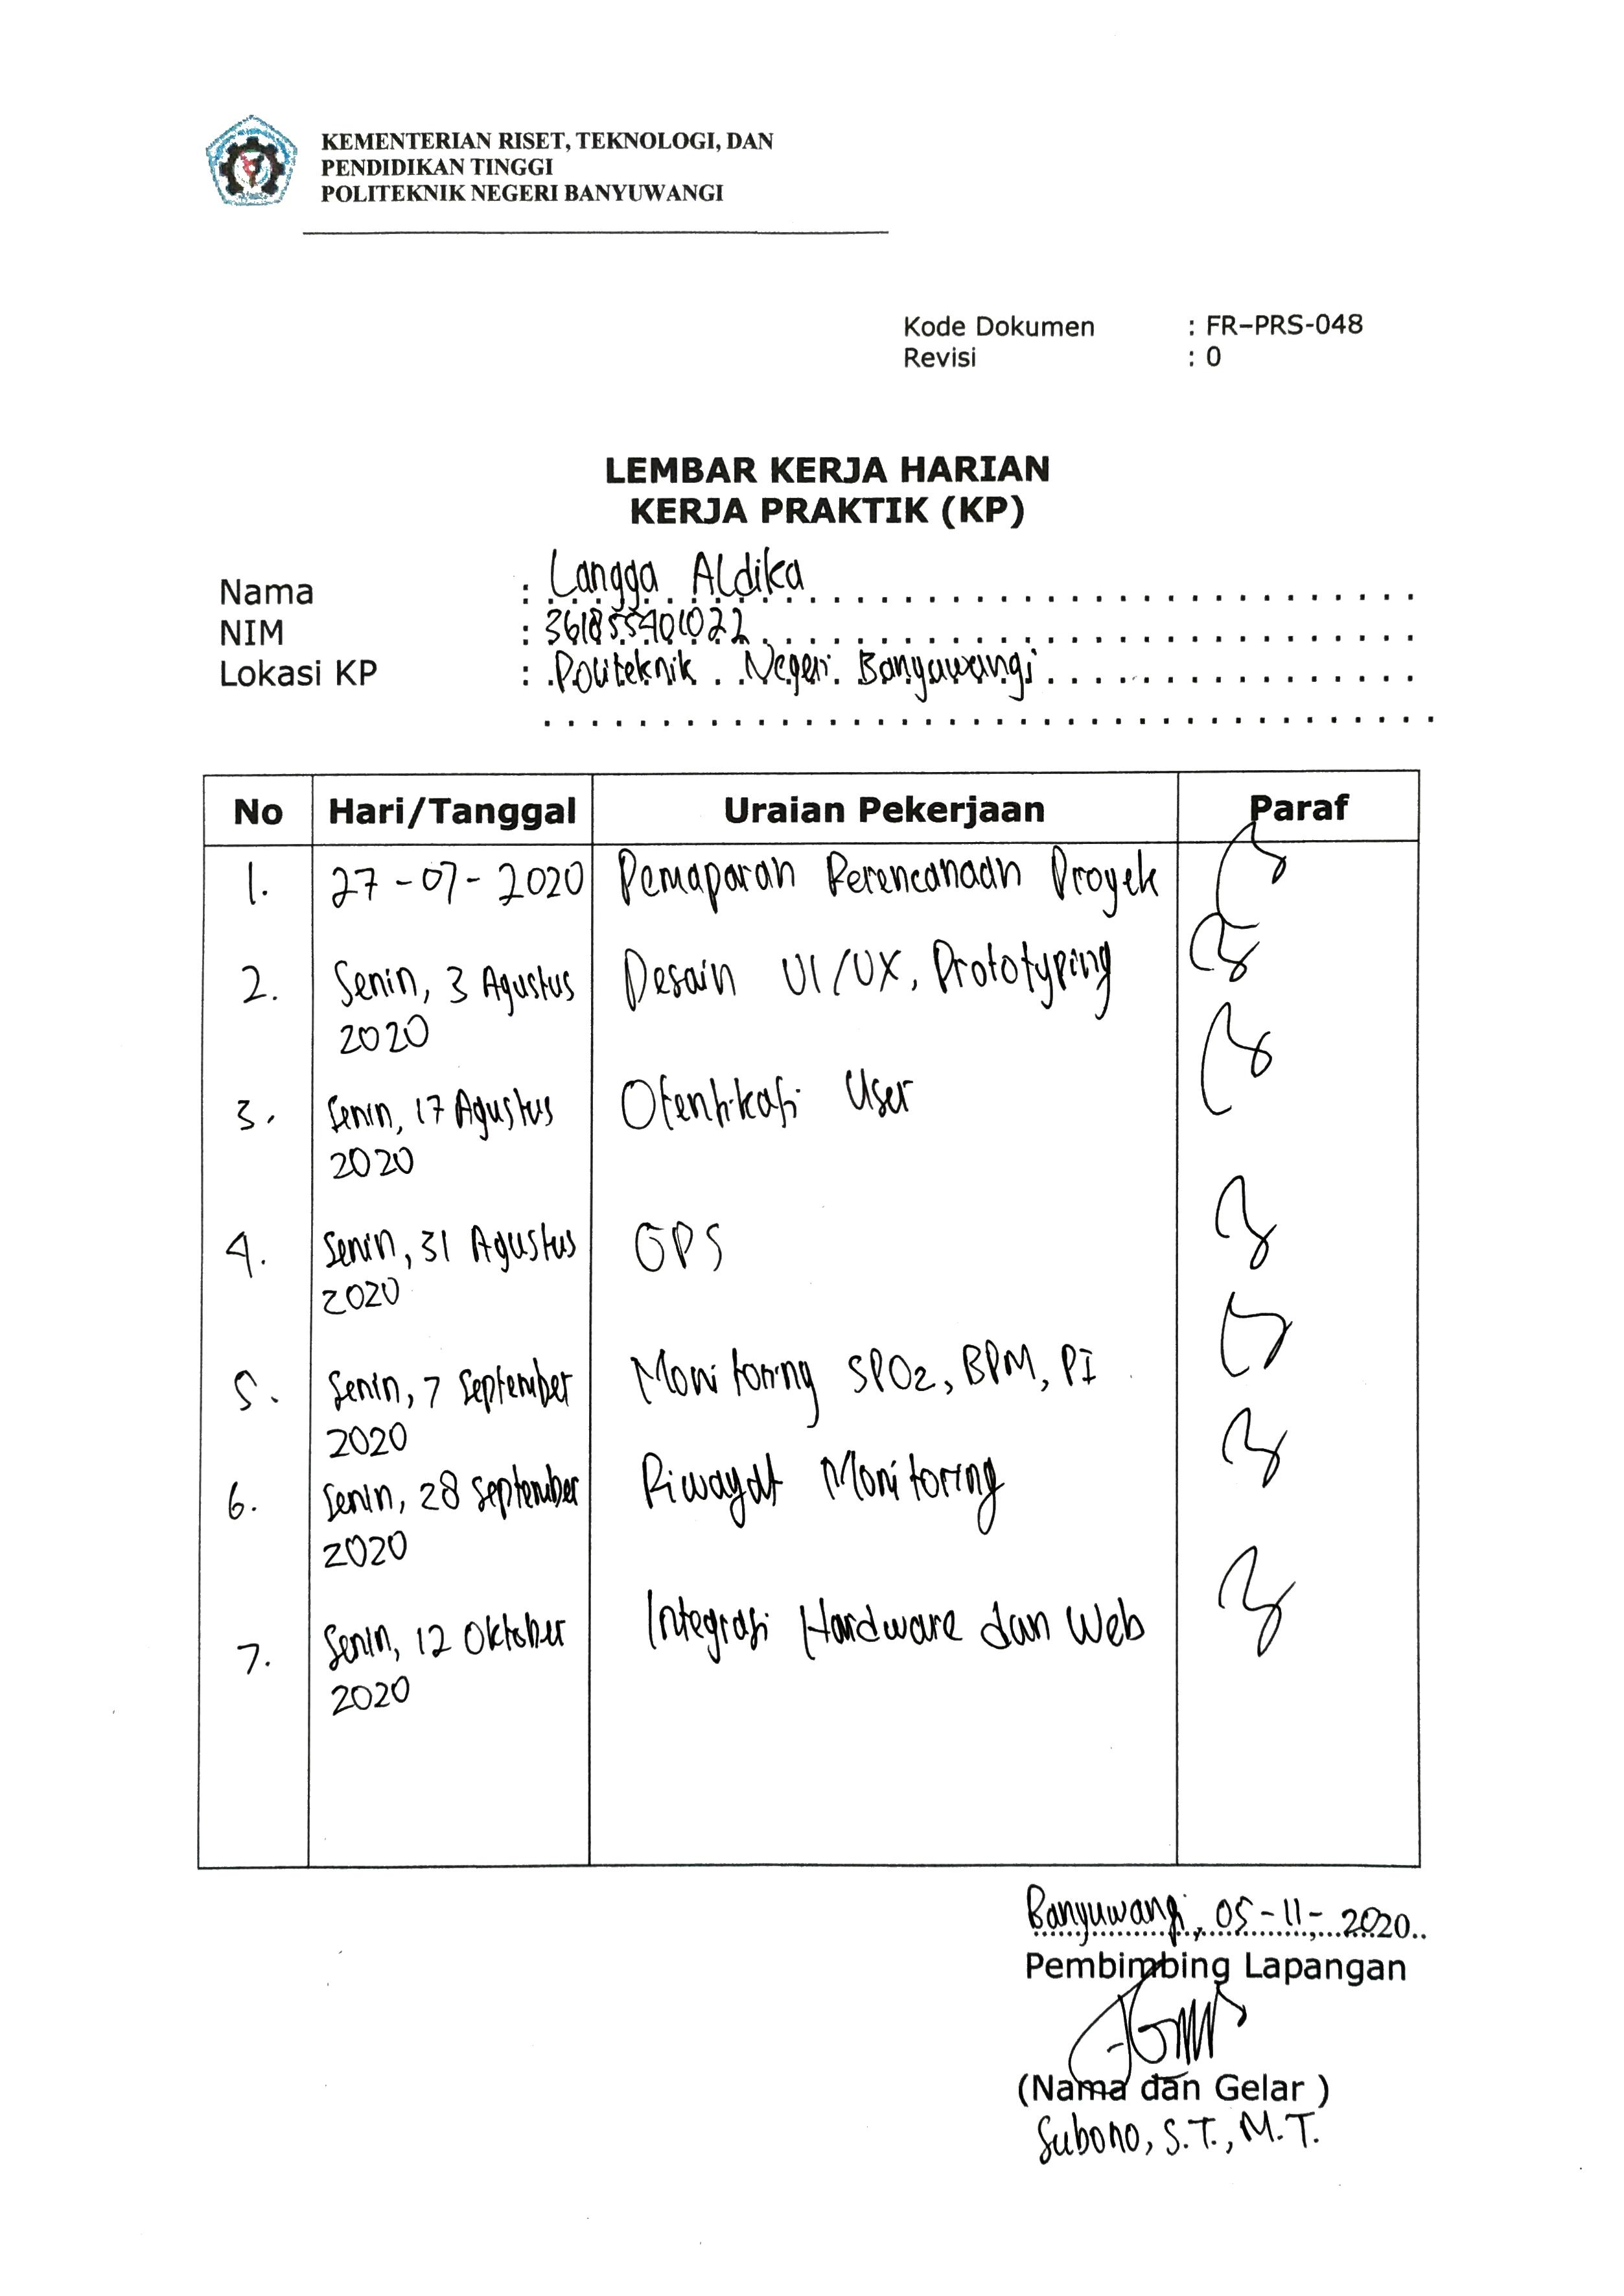 KEMENTERIAN RISET, TEKNOLOGI, DAN
PENDIDIKAN TINGGI
POLITEKNIK NEGERI BANYUWANGI
Kode Dokumen : FR-PRS-048
Revisi : 0
LEMBAR KERJA HARIAN
KERJA PRAKTIK (KP)
Nama : Langga Aldika
NIM : 361855401022
Lokasi KP : Politeknik Negeri Banyuwangi
No Hari/Tanggal Uraian Pekerjaan Paraf
1. 27-07-2020 Pemaparan Perencanaan Proyek
2. Senin, 3 Agustus Desain UI/UX, Prototyping
2020
3. Senin, 17 Agustus Otentikasi User
2020
4. Senin, 31 Agustus GPS
2020
5. Senin, 7 September Monitoring SPO2, BPM, PI
2020
6. Senin, 28 September Riwayat Monitoring
2020
7. Senin, 12 Oktober Integrasi Hardware dan Web
2020
Banyuwangi, 05-11-2020
Pembimbing Lapangan
(Nama dan Gelar )
Subono, S.T., M.T.